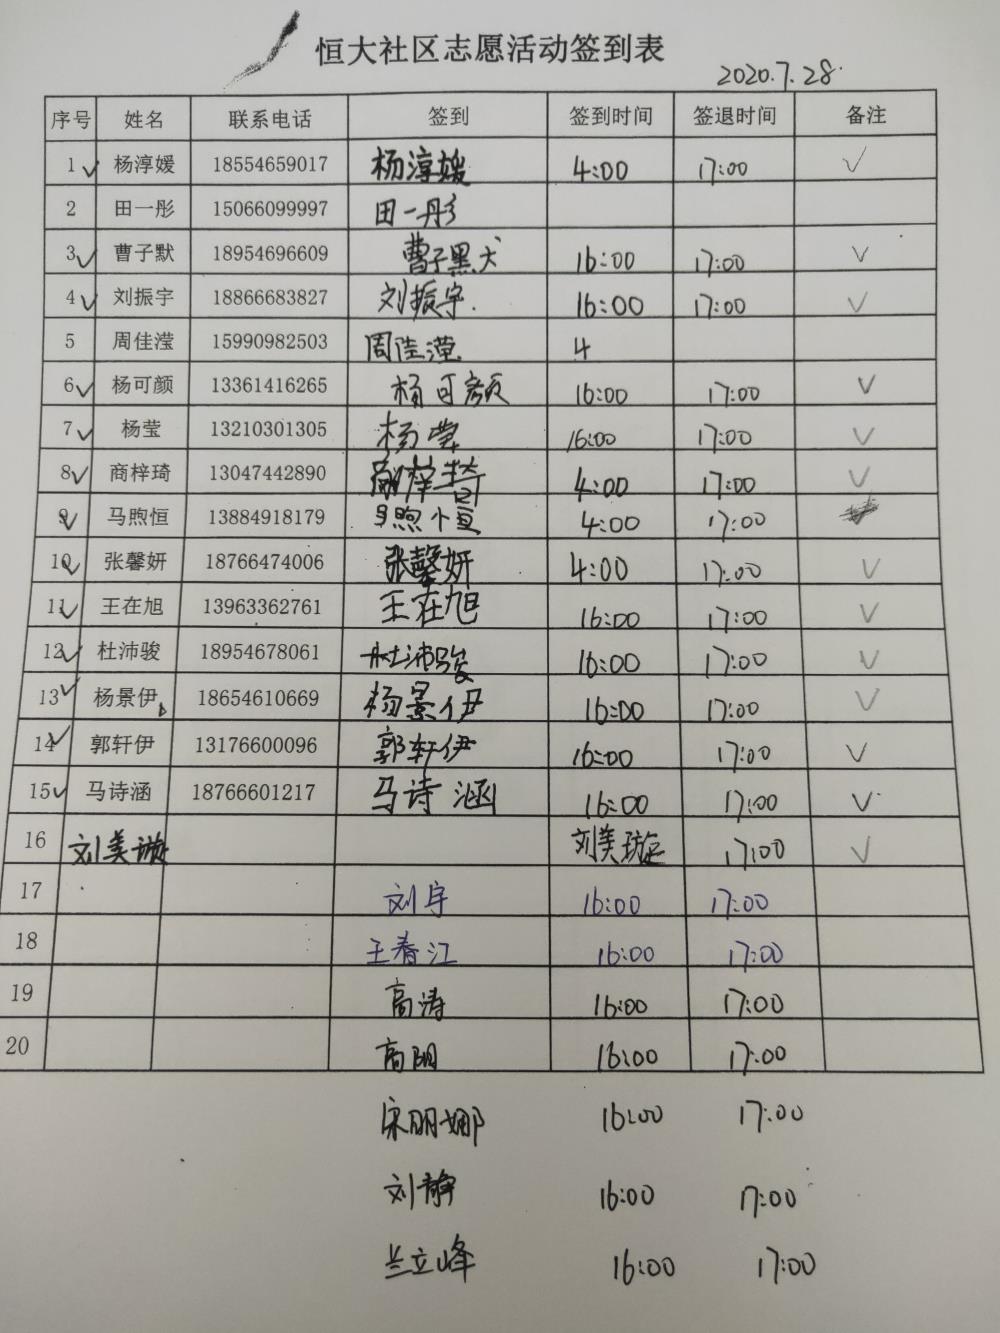 恒大社区志愿活动签到表
2020.7.28.
序号 姓名 联系电话 签到 签到时间 签退时间 备注
1✓ 杨淳媛 18554659017 杨淳媛 4:00 17:00 ✓
2 田一彤 15066099997 田一彤
3✓ 曹子默 18954696609 曹子默 16:00 17:00 ✓
4✓ 刘振宇 18866683827 刘振宇. 16:00 17:00 ✓
5 周佳滢 15990982503 周佳滢 4
6✓ 杨可颜 13361416265 杨可颜 16:00 17:00 ✓
7✓ 杨莹 13210301305 杨莹 16:00 17:00 ✓
8✓ 商梓琦 13047442890 商梓琦 4:00 17:00 ✓
9✓ 马煦恒 13884918179 马煦恒 4:00 17:00
10✓ 张馨妍 18766474006 张馨妍 4:00 17:00 ✓
11✓ 王在旭 13963362761 王在旭 16:00 17:00 ✓
12✓ 杜沛骏 18954678061 杜沛骏 16:00 17:00 ✓
13✓ 杨景伊 18654610669 杨景伊 16:00 17:00 ✓
14✓ 郭轩伊 13176600096 郭轩伊 16:00 17:00 ✓
15✓ 马诗涵 18766601217 马诗涵 16:00 17:00 ✓
16 刘美璇 刘美璇 17:00 ✓
17 刘宇 16:00 17:00
18 王春江 16:00 17:00
19 高涛 16:00 17:00
20 高阳 16:00 17:00
宋丽娜 16:00 17:00
刘静 16:00 17:00
兰立峰 16:00 17:00